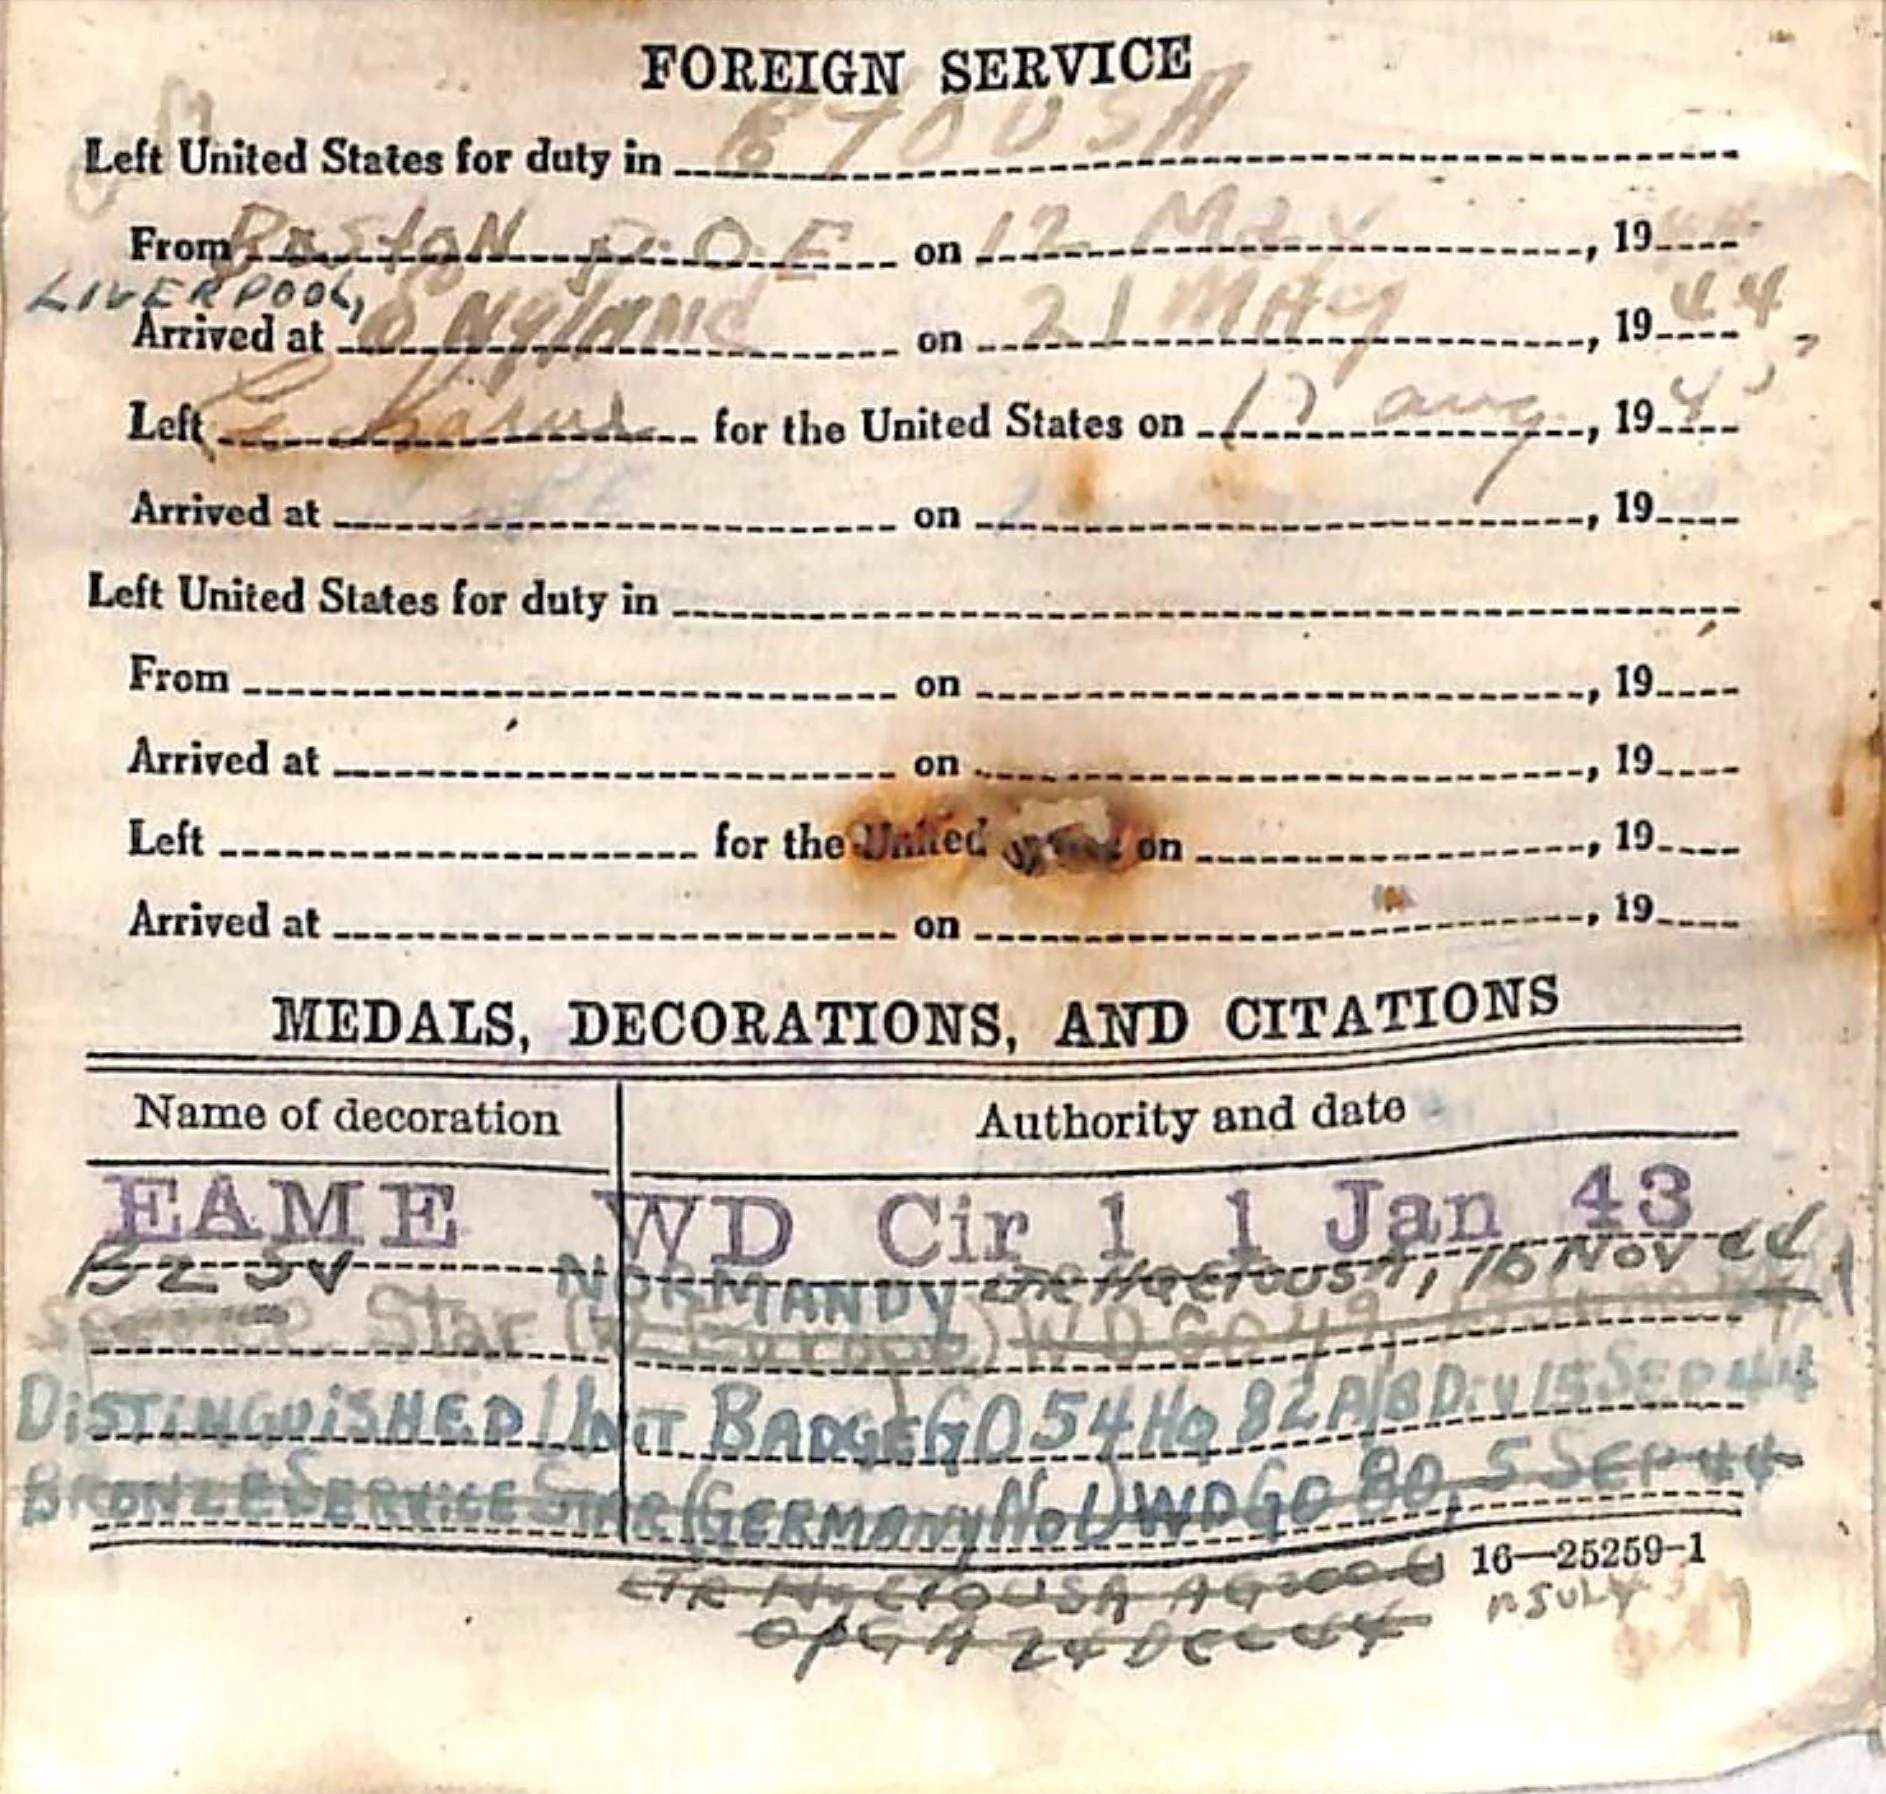 FOREIGN SERVICE
Left United States for duty in ETOUSA
From Boston P.O.E on 12 May, 1944
LIVERPOOL,
Arrived at England on 21 May, 1944
Left for the United States on 17 aug, 1945
Arrived at on , 19
Left United States for duty in
From on , 19
Arrived at on , 19
Left for the United on , 19
Arrived at on , 19
MEDALS, DECORATIONS, AND CITATIONS
Name of decoration Authority and date
EAME WD Cir 1 1 Jan 43
BZ SV NORMANDY LTR HQ ETOUSA, 16 NOV 44
Service Star (W Europe) WD GO 49,
DiSTiNGUiSHED Unit BADGE GO 54 HQ 82 A/B Div 15 SEP 44
BRONZE SERVICE STAR (GERMANY No 1) WD GO 80, 5 SEP 44
16—25259-1
LTR HQ ETOUSA AG 200.6
OpGA 24 DEC 44
JULY